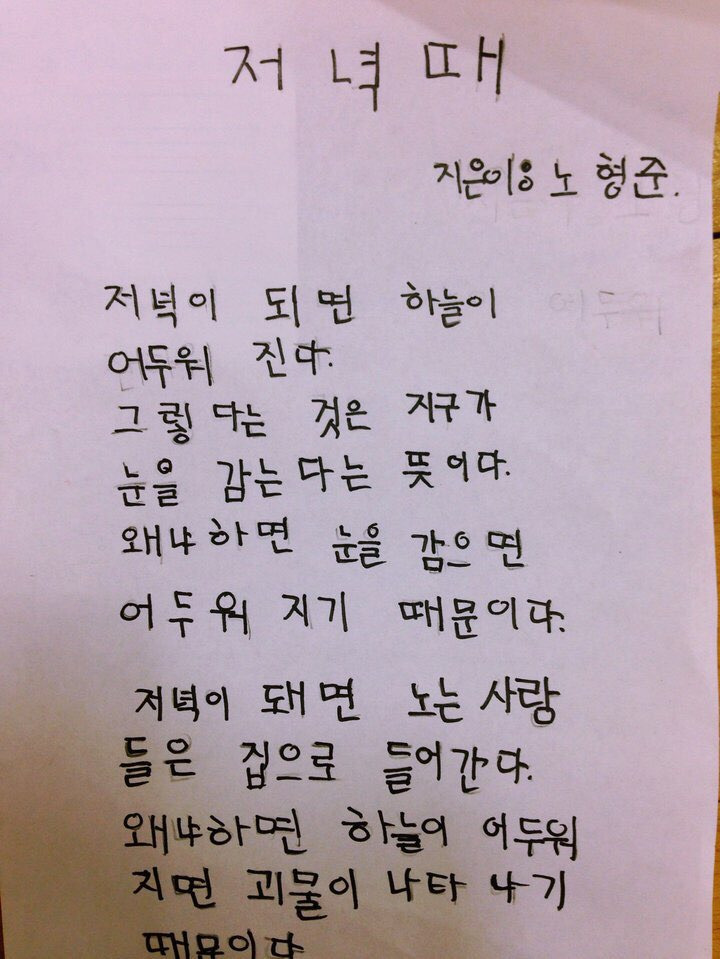 저녁때
지은이: 노형준.
저녁이 되면 하늘이
어두워 진다.
그렇다는 것은 지구가
눈을 감는다는 뜻이다.
왜냐하면 눈을 감으면
어두워 지기 때문이다.
저녁이 돼면 노는 사람
들은 집으로 들어간다.
왜냐하면 하늘이 어두워
지면 괴물이 나타나기
때문이다